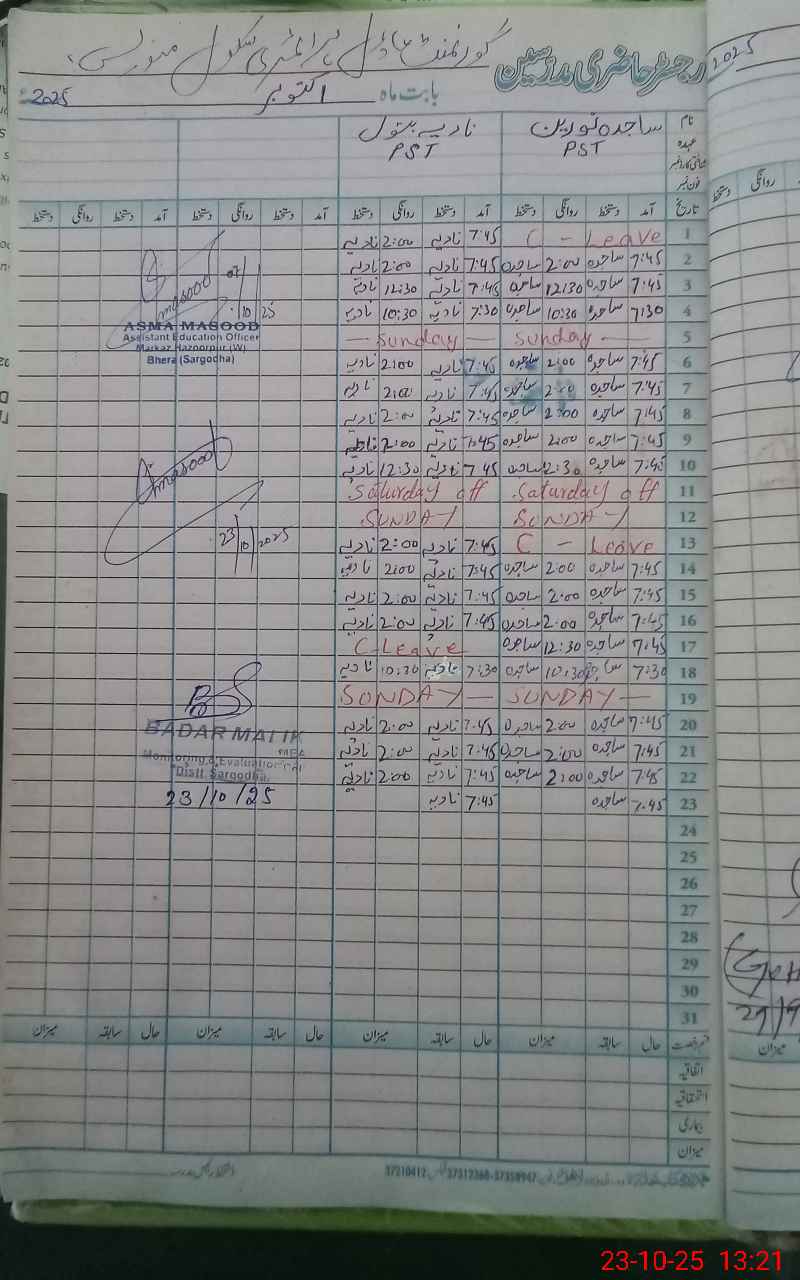 گورنمنٹ ماڈل پرائمری سکول
رجسٹر حاضری مدرسین
بابت ماہ اکتوبر 2025
2025
نام ساجدہ نورین نادیہ بتول
عہدہ PST PST
فون نمبر
تاریخ آمد دستخط روانگی دستخط آمد دستخط روانگی دستخط آمد دستخط روانگی دستخط آمد دستخط روانگی دستخط
روانگی دستخط
1 C - Leave 7:45 نادیہ 2:00 نادیہ
2 7:45 ساجدہ 2:00 ساجدہ 7:45 نادیہ 2:00 نادیہ
3 7:45 ساجدہ 12:30 ساجدہ 7:45 نادیہ 12:30 نادیہ
4 7:30 ساجدہ 10:30 ساجدہ 7:30 نادیہ 10:30 نادیہ
5 Sunday — Sunday —
6 7:45 ساجدہ 2:00 ساجدہ 7:45 نادیہ 2:00 نادیہ
7 7:45 ساجدہ 2:00 ساجدہ 7:45 نادیہ 2:00 نادیہ
8 7:45 ساجدہ 2:00 ساجدہ 7:45 نادیہ 2:00 نادیہ
9 7:45 ساجدہ 2:00 ساجدہ 7:45 نادیہ 2:00 نادیہ
10 7:45 ساجدہ 12:30 ساجدہ 7:45 نادیہ 12:30 نادیہ
11 Saturday off Saturday off
12 SUNDAY SUNDAY
13 C - Leave 7:45 نادیہ 2:00 نادیہ
14 7:45 ساجدہ 2:00 ساجدہ 7:45 نادیہ 2:00 نادیہ
15 7:45 ساجدہ 2:00 ساجدہ 7:45 نادیہ 2:00 نادیہ
16 7:45 ساجدہ 2:00 ساجدہ 7:45 نادیہ 2:00 نادیہ
17 7:45 ساجدہ 12:30 ساجدہ C-Leave
18 7:30 ساجدہ 10:30 ساجدہ 7:30 نادیہ 10:30 نادیہ
19 SUNDAY — SUNDAY —
20 7:45 ساجدہ 2:00 ساجدہ 7:45 نادیہ 2:00 نادیہ
21 7:45 ساجدہ 2:00 ساجدہ 7:45 نادیہ 2:00 نادیہ
22 7:45 ساجدہ 2:00 ساجدہ 7:45 نادیہ 2:00 نادیہ
23 7:45 ساجدہ 7:45 نادیہ
24
25
26
27
28
29
30
31
Amasood
07/10/25
ASMA MASOOD
Assistant Education Officer
Markaz Hazoorpur (W)
Bhera (Sargodha)
Amasood
23/10/2025
BADAR MALIK
MEA
Monitoring & Evaluation
Distt. Sargodha.
23/10/25
حال سابقہ میزان حال سابقہ میزان حال سابقہ میزان حال سابقہ میزان
میزان
اتفاقیہ
استحقاقیہ
بیماری
میزان
37310412 37312368-37358947
23-10-25 13:21